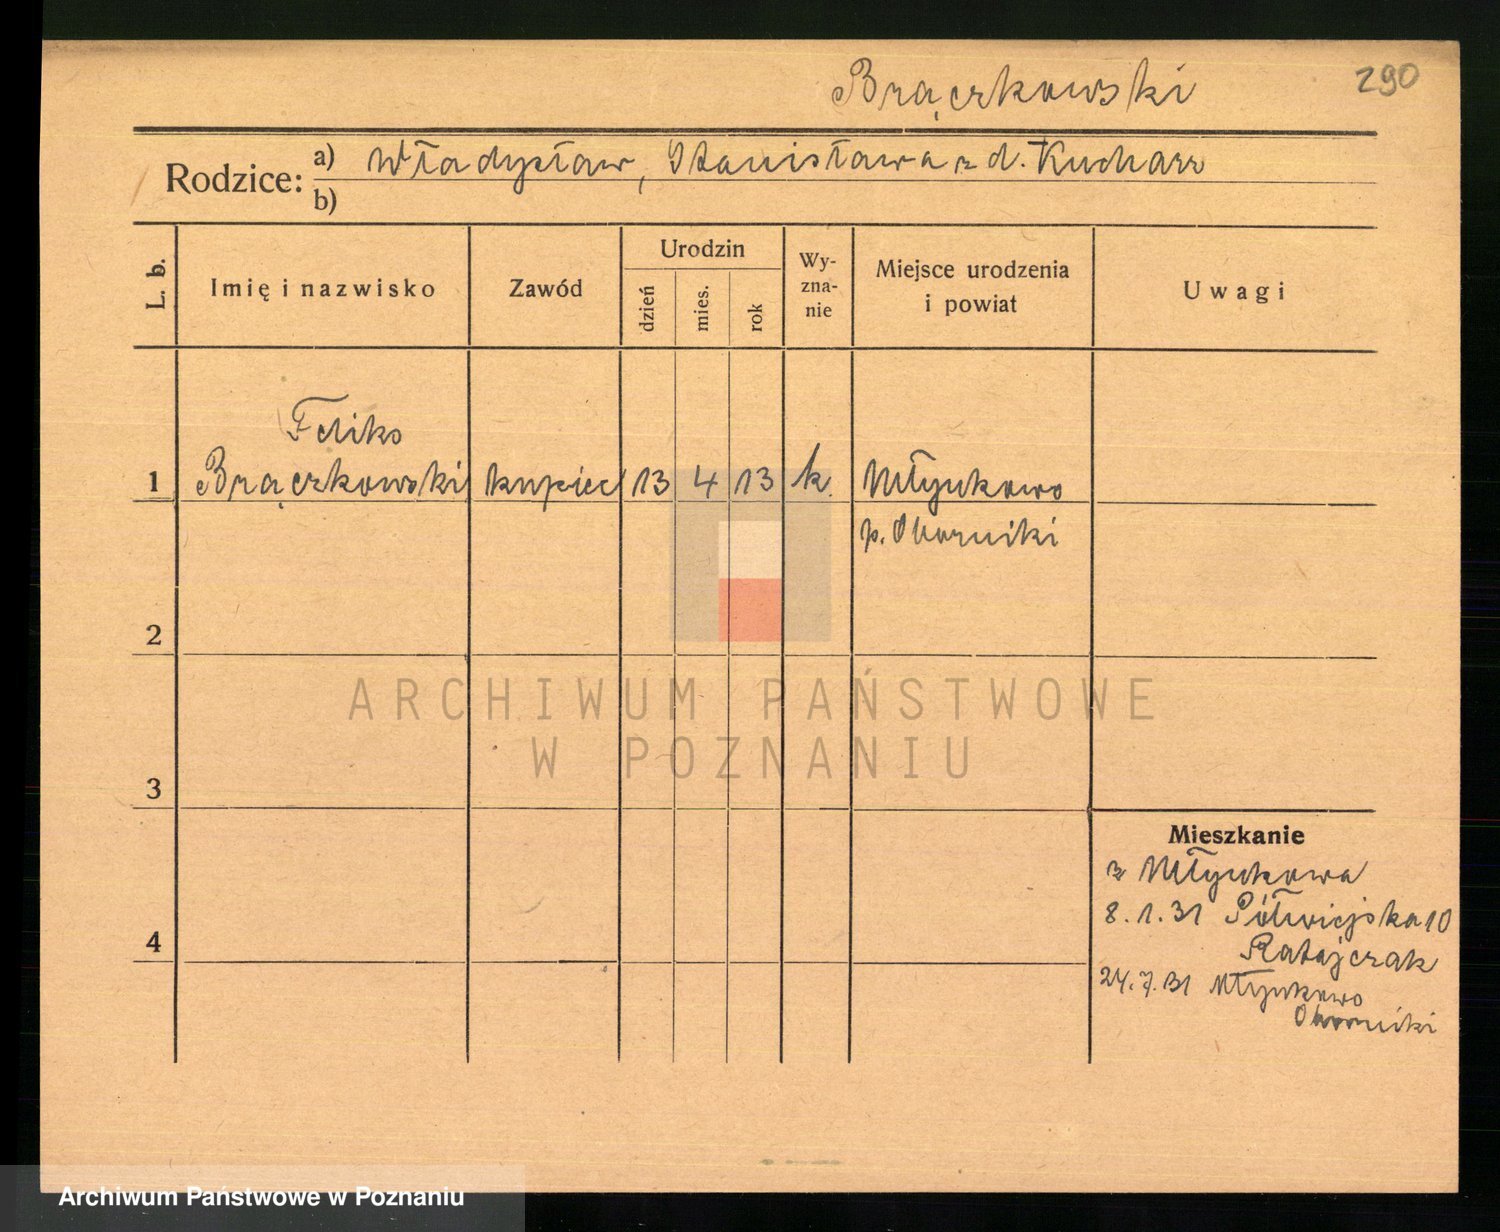 Brączkowski
290
Rodzice: a) Władysław, Stanisława z d. Kucharz
b)
L. b.
Imię i nazwisko
Zawód
Urodzin
dzień
mies.
rok
Wy-
zna-
nie
Miejsce urodzenia
i powiat
Uwagi
Feliks
1 Brączkowski kupiec 13 4 13 k. Młynkowo
p. Oborniki
2
3
4
Mieszkanie
z Młynkowa
8.1.31 Półwiejska 10
Ratajczak
24.7.31 Młynkowo
Oborniki
ARCHIWUM PAŃSTWOWE
W POZNANIU
Archiwum Państwowe w Poznaniu